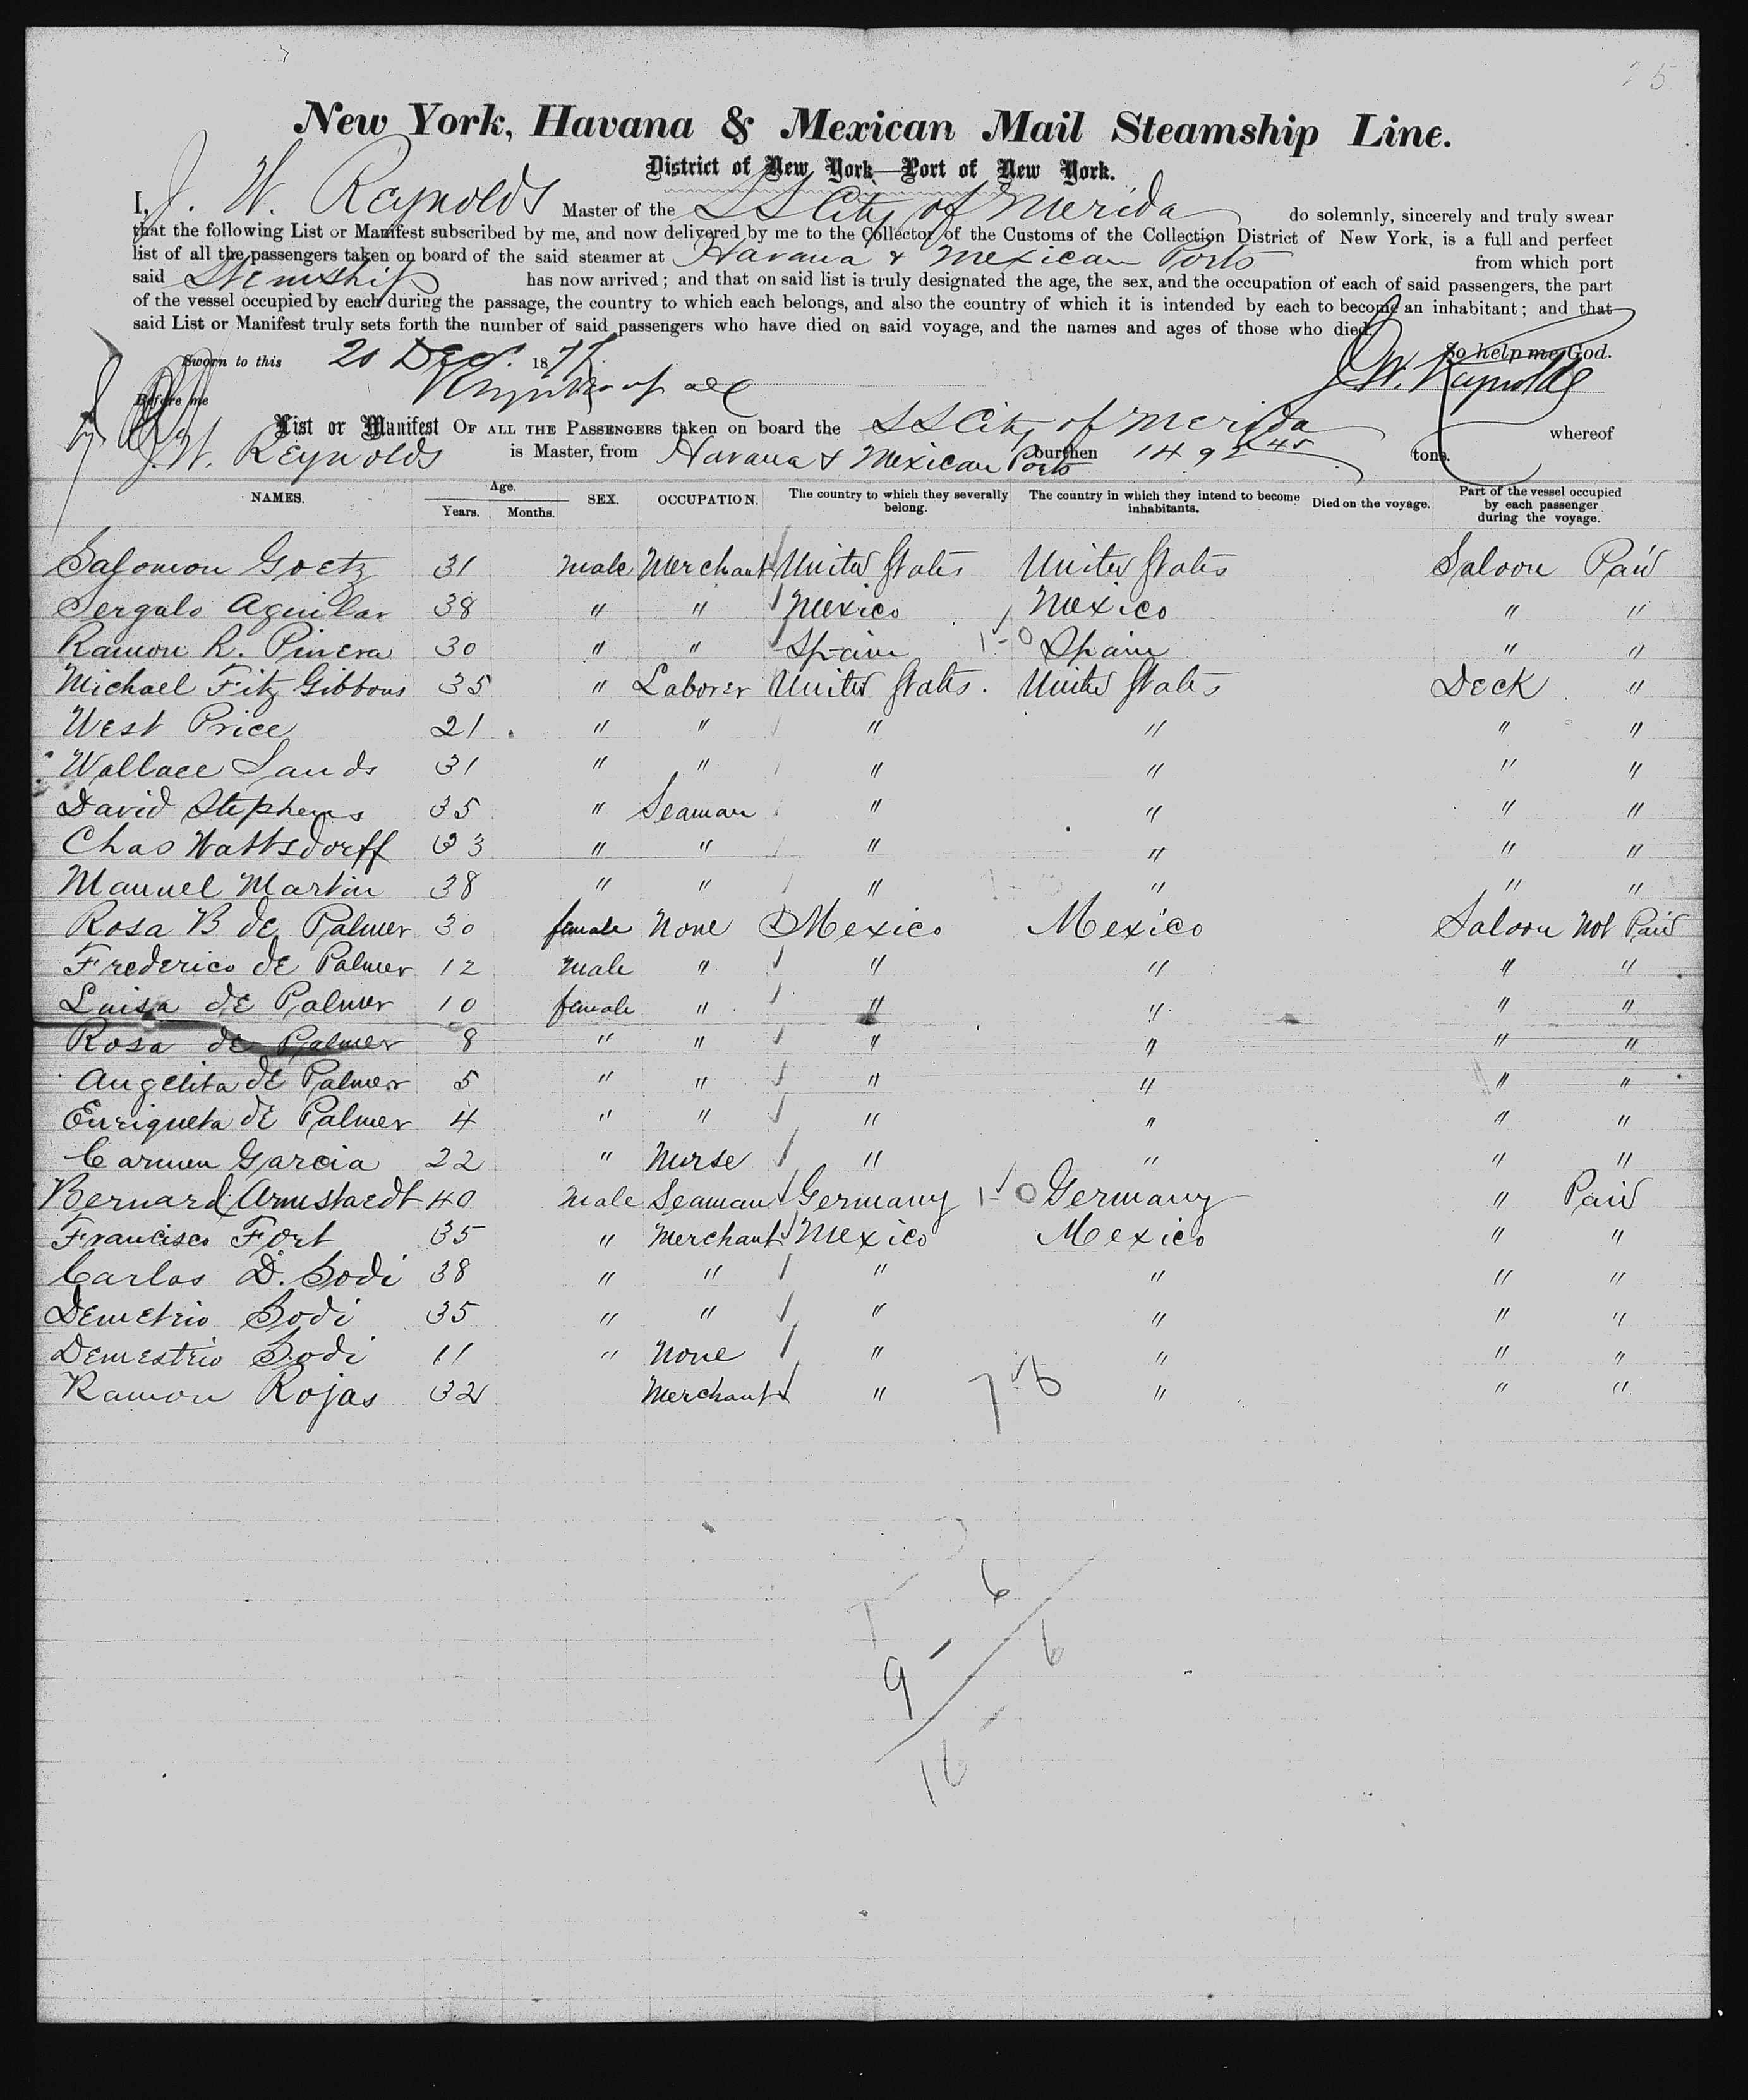 25
New York, Havana & Mexican Mail Steamship Line.
District of New York—Port of New York.
I, J. W. Reynolds Master of the SS City of Merida do solemnly, sincerely and truly swear
that the following List or Manifest subscribed by me, and now delivered by me to the Collector of the Customs of the Collection District of New York, is a full and perfect
list of all the passengers taken on board of the said steamer at Havana & Mexican Ports from which port
said Stemship has now arrived; and that on said list is truly designated the age, the sex, and the occupation of each of said passengers, the part
of the vessel occupied by each during the passage, the country to which each belongs, and also the country of which it is intended by each to become an inhabitant; and that
said List or Manifest truly sets forth the number of said passengers who have died on said voyage, and the names and ages of those who died.
So help me God.
Sworn to this 20 Dec. 1877. J. W. Reynolds
Before me
List or Manifest OF ALL THE PASSENGERS taken on board the SS City of Merida whereof
J. W. Reynolds is Master, from Havana & Mexican Ports burthen 1492 tons.
NAMES. Age. Years. Months. SEX. OCCUPATION. The country to which they severally belong. The country in which they intend to become inhabitants. Died on the voyage. Part of the vessel occupied by each passenger during the voyage.
Salomon Goetz 31 Male Merchant United States United States Saloon Paid
Sergulo Aguilar 38 " " Mexico Mexico " "
Ramon R. Pinera 30 " " Spain 1-0 Spain " "
Michael Fitz Gibbons 35 " Laborer United States. United States Deck "
West Price 21 " " " " " "
Wallace Sands 31 " " " " " "
David Stephens 35 " Seaman " " " "
Chas Wattsdorff 33 " " " " " "
Manuel Martin 38 " " " " " "
Rosa B de Palmer 30 female None Mexico Mexico Saloon Not Paid
Frederico de Palmer 12 Male " " " " "
Luisa de Palmer 10 female " " " " "
Rosa de Palmer 8 " " " " " "
Angelita de Palmer 5 " " " " " "
Enriqueta de Palmer 4 " " " " " "
Carmen Garcia 22 " Nurse " " " "
Bernard Armstaedt 40 Male Seaman Germany 1-0 Germany " Paid
Francisco Fort 35 " Merchant Mexico Mexico " "
Carlos D. Bodi 38 " " " " " "
Demetrio Bodi 35 " " " " " "
Demestrio Bodi 11 " None " " " "
Ramon Rojas 32 Merchant " 7-6 " " "
6
9 6
16